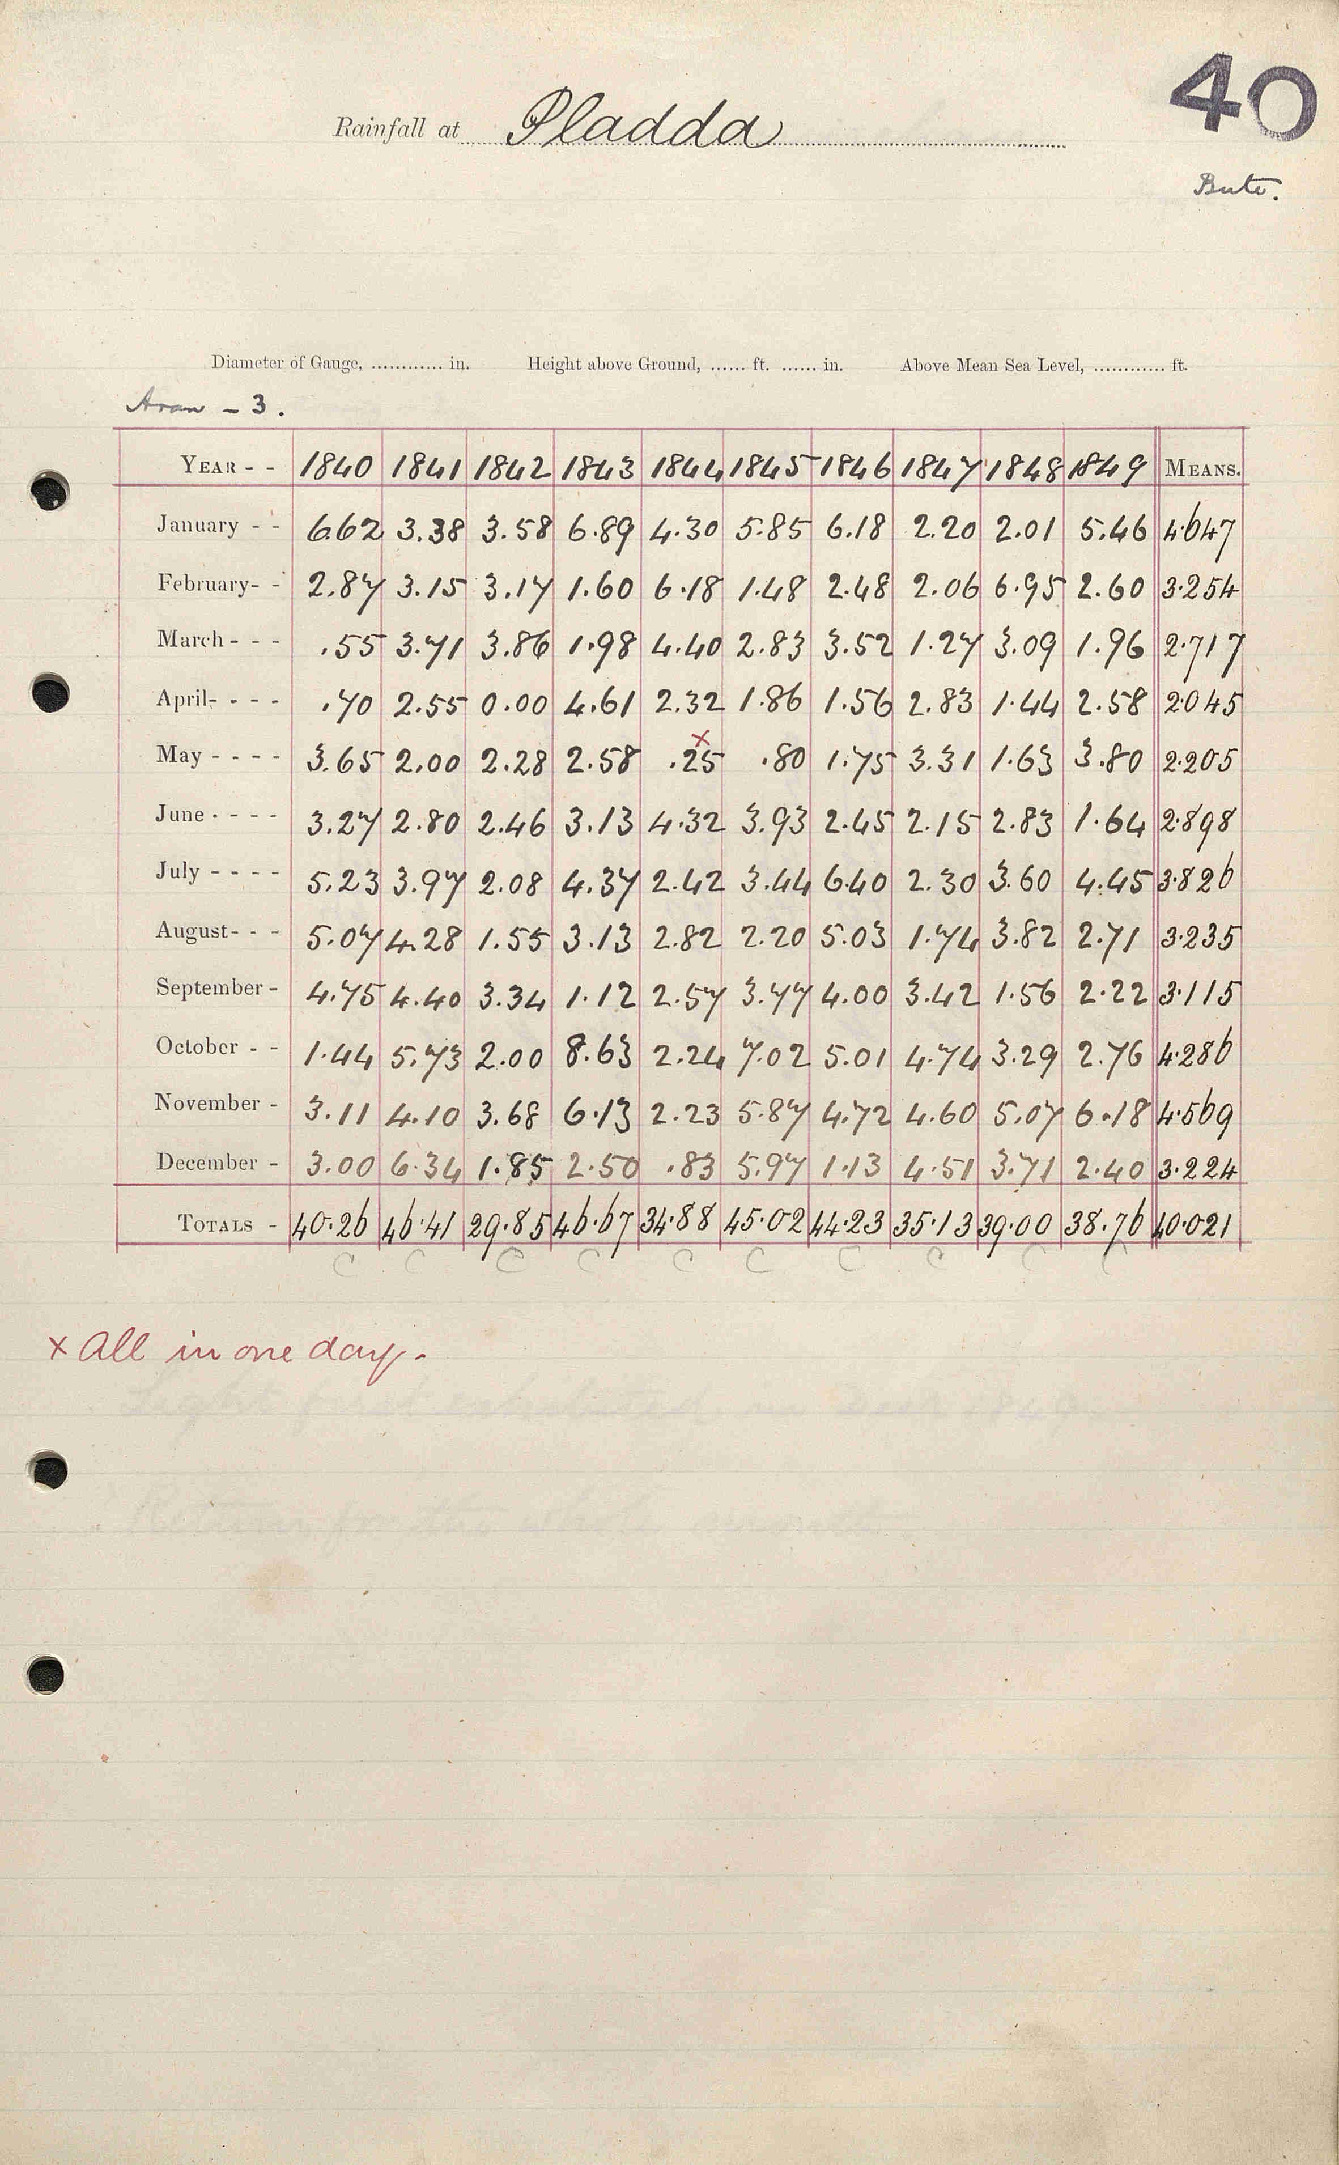 40
Rainfall at Pladda
Bute.
Diameter of Gauge, ............ in. Height above Ground, ...... ft. ...... in. Above Mean Sea Level, ............ ft.
Aran - 3.
YEAR - - 1840 1841 1842 1843 1844 1845 1846 1847 1848 1849 MEANS.
January - - 6.62 3.38 3.58 6.89 4.30 5.85 6.18 2.20 2.01 5.46 4.647
February - - 2.87 3.15 3.17 1.60 6.18 1.48 2.48 2.06 6.95 2.60 3.254
March - - - .55 3.71 3.86 1.98 4.40 2.83 3.52 1.27 3.09 1.96 2.717
April - - - - .70 2.55 0.00 4.61 2.32 1.86 1.56 2.83 1.44 2.58 2.045
May - - - - 3.65 2.00 2.28 2.58 .25 x .80 1.75 3.31 1.63 3.80 2.205
June - - - - 3.27 2.80 2.46 3.13 4.32 3.93 2.45 2.15 2.83 1.64 2.898
July - - - - 5.23 3.97 2.08 4.37 2.42 3.44 6.40 2.30 3.60 4.45 3.826
August - - - 5.07 4.28 1.55 3.13 2.82 2.20 5.03 1.74 3.82 2.71 3.235
September - 4.75 4.40 3.34 1.12 2.57 3.77 4.00 3.42 1.56 2.22 3.115
October - - 1.44 5.73 2.00 8.63 2.24 7.02 5.01 4.74 3.29 2.76 4.286
November - 3.11 4.10 3.68 6.13 2.23 5.87 4.72 4.60 5.07 6.18 4.569
December - 3.00 6.34 1.85 2.50 .83 5.97 1.13 4.51 3.71 2.40 3.224
TOTALS - 40.26 46.41 29.85 46.67 34.88 45.02 44.23 35.13 39.00 38.76 40.021
C C C C C C C C C C
x All in one day.